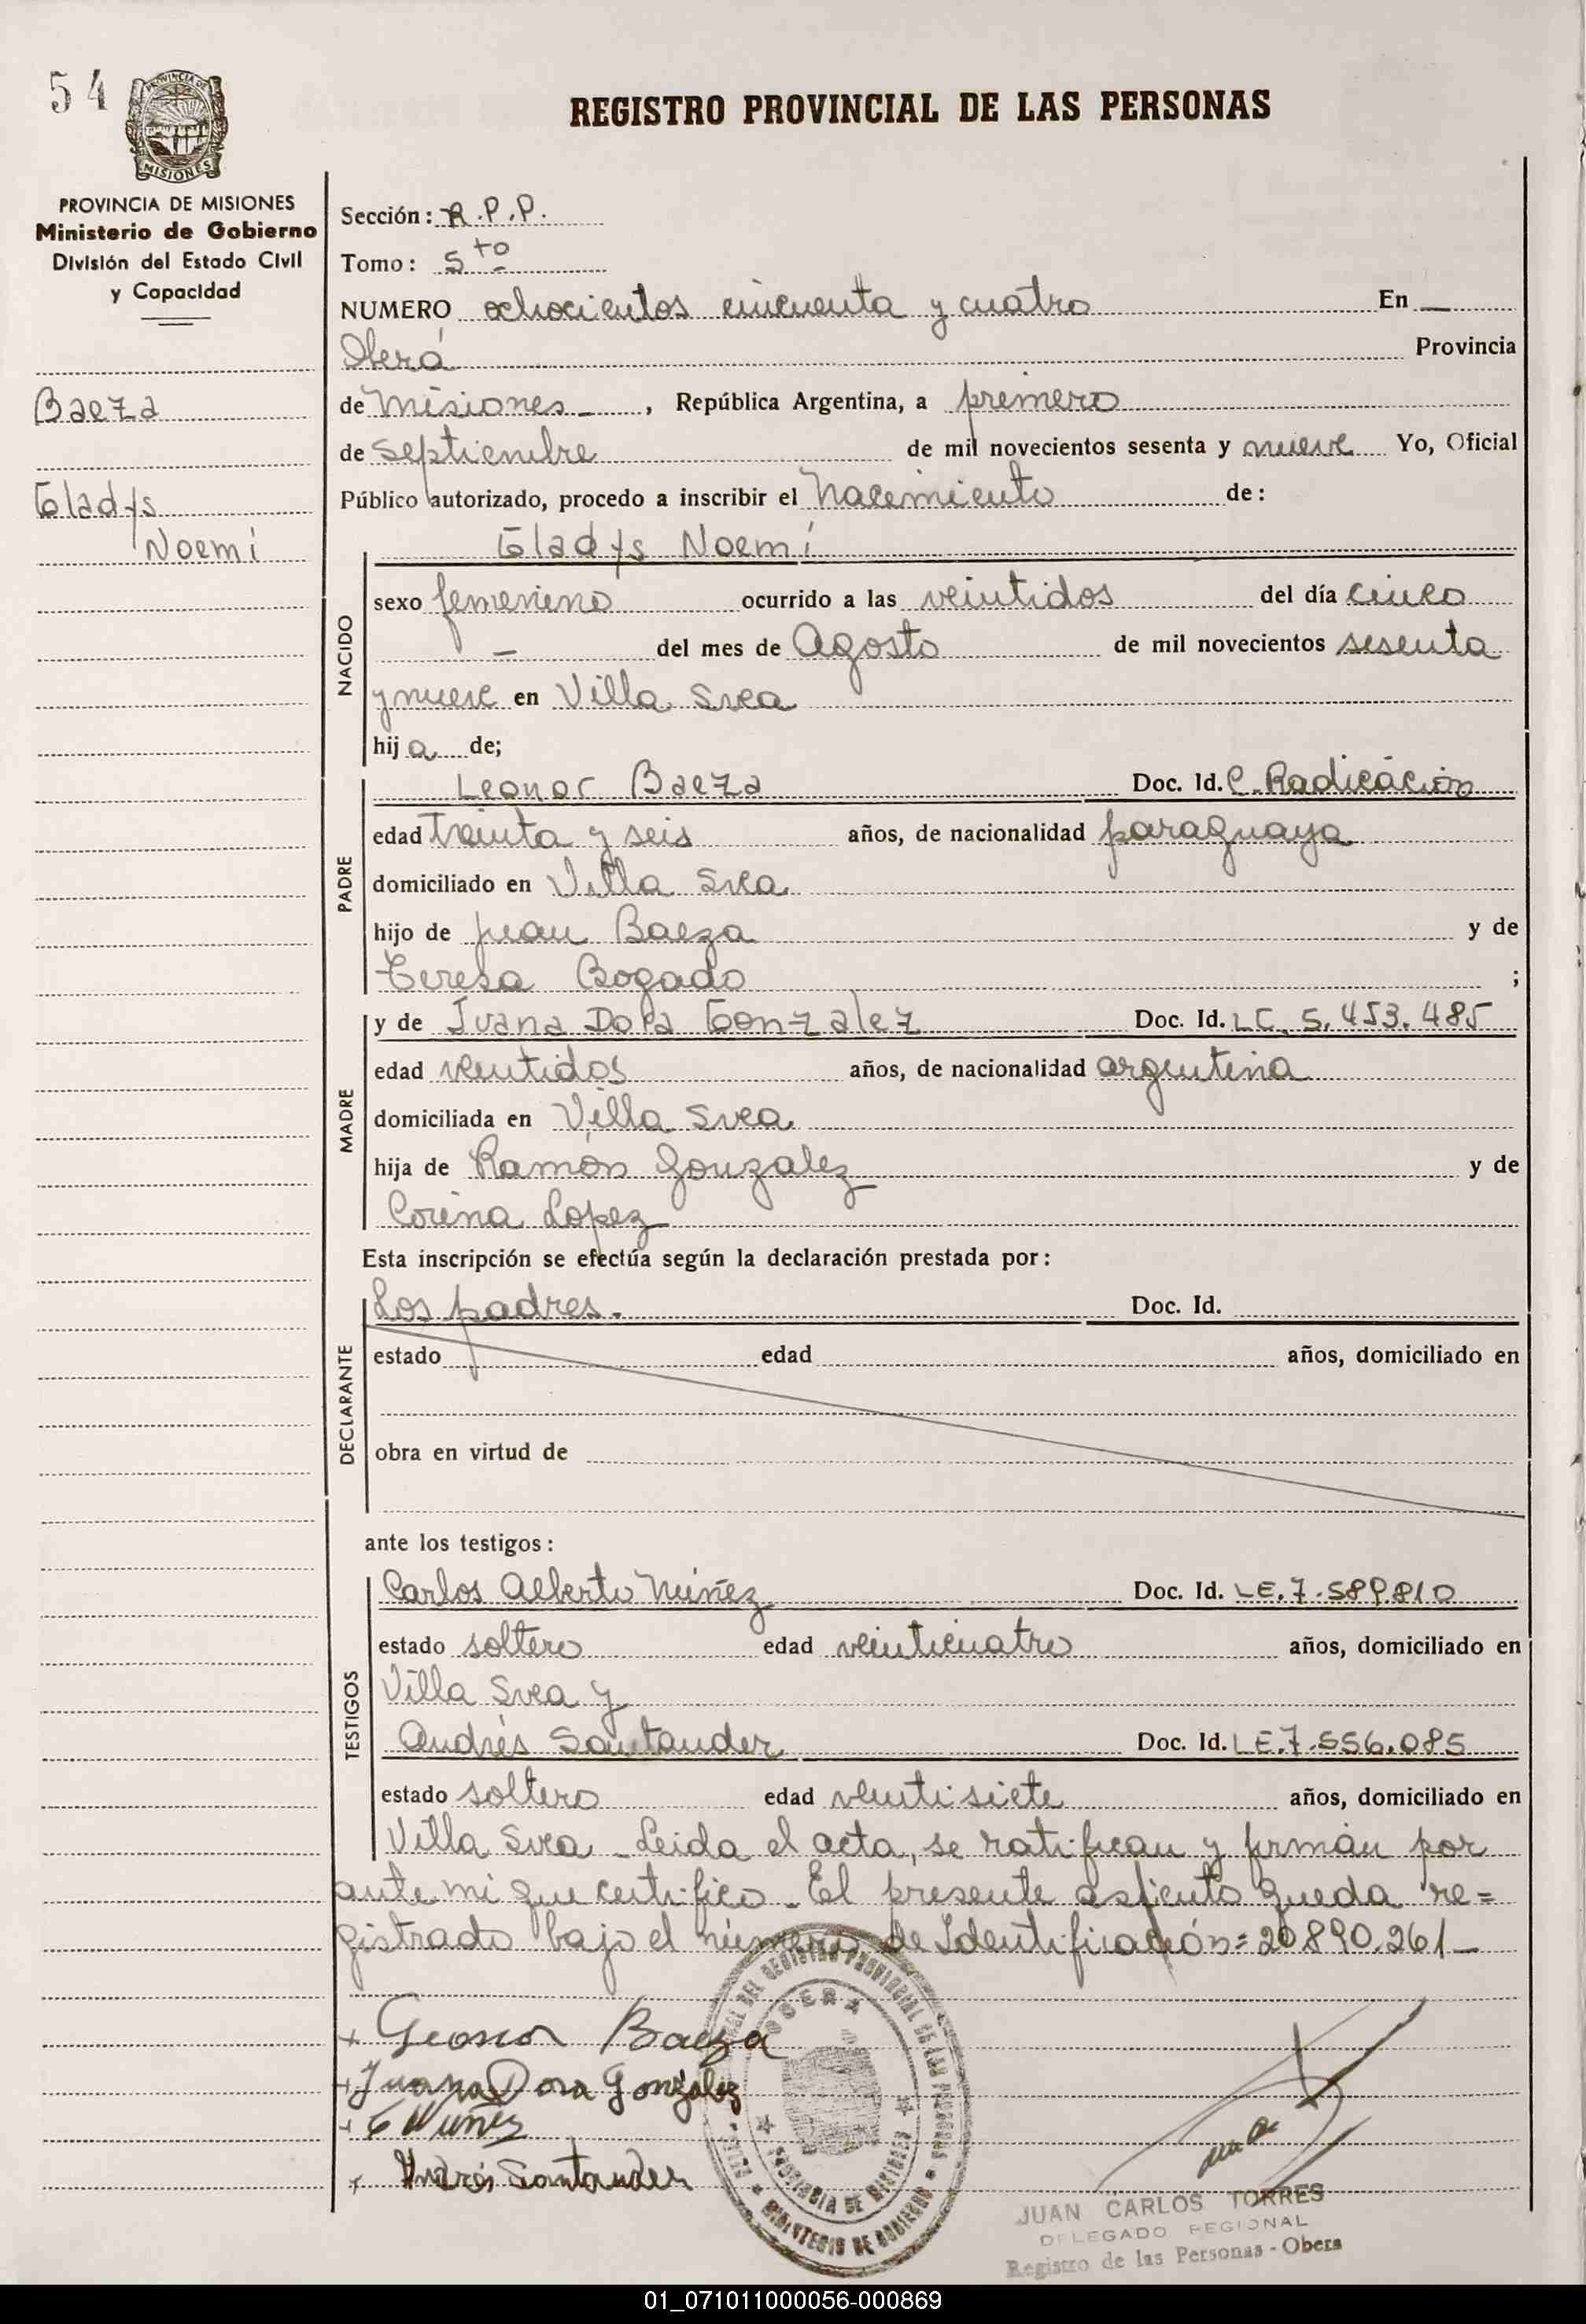 54
PROVINCIA DE
MISIONES
REGISTRO PROVINCIAL DE LAS PERSONAS
PROVINCIA DE MISIONES
Ministerio de Gobierno
División del Estado Civil
y Capacidad
Baeza
Gladys
Noemí
Sección: R.P.P.
Tomo: 5to
NUMERO ochocientos cincuenta y cuatro En —
Oberá Provincia
de Misiones - , República Argentina, a primero
de septiembre de mil novecientos sesenta y nueve Yo, Oficial
Público autorizado, procedo a inscribir el Nacimiento de:
Gladys Noemí
NACIDO
sexo femenino ocurrido a las veintidos del día cinco
— del mes de Agosto de mil novecientos sesenta
y nueve en Villa Svea
hija de;
PADRE
Leonor Baeza Doc. Id. C. Radicación
edad treinta y seis años, de nacionalidad paraguaya
domiciliado en Villa Svea
hijo de Juan Baeza y de
Teresa Bogado ;
MADRE
y de Juana Dora Gonzalez Doc. Id. LC. 5.453.485
edad veintidos años, de nacionalidad argentina
domiciliada en Villa Svea
hija de Ramón Gonzalez y de
Corina Lopez
Esta inscripción se efectúa según la declaración prestada por:
DECLARANTE
Los padres.- Doc. Id.
estado edad años, domiciliado en
obra en virtud de
ante los testigos:
TESTIGOS
Carlos Alberto Núñez Doc. Id. LE.7.589.810
estado soltero edad veinticuatro años, domiciliado en
Villa Svea y
Andrés Santander Doc. Id. LE.7.556.085
estado soltero edad veintisiete años, domiciliado en
Villa Svea - Leida el acta, se ratifican y firman por
ante mi que certifico - El presente asiento queda re=
gistrado bajo el número de Identificación= 20890.261-
Leonor Baeza
Juana Dora González
C Nuñez
Andrés Santander
OBERA
PROVINCIA DE MISIONES
MINISTERIO DE GOBIERNO
JUAN CARLOS TORRES
DELEGADO REGIONAL
Registro de las Personas - Obera
01_071011000056-000869